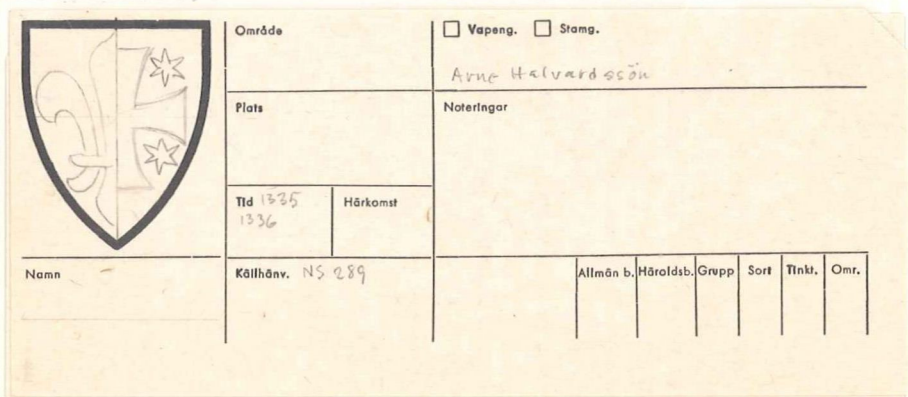 Område
Vapeng. Stamg.
Arne Halvardssön
Plats
Noteringar
Tid 1335
1336
Härkomst
Namn
Källhänv. NS 289
Allmän b. Häroldsb. Grupp Sort Tinkt. Omr.